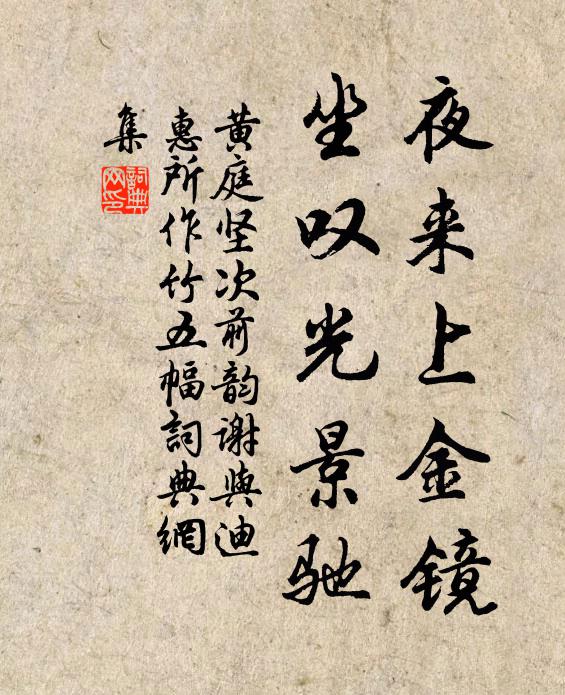 夜来上金镜
坐叹光景驰
黄庭坚次前韵谢與迪
惠所作竹五幅詞典網
集
詞典
网印